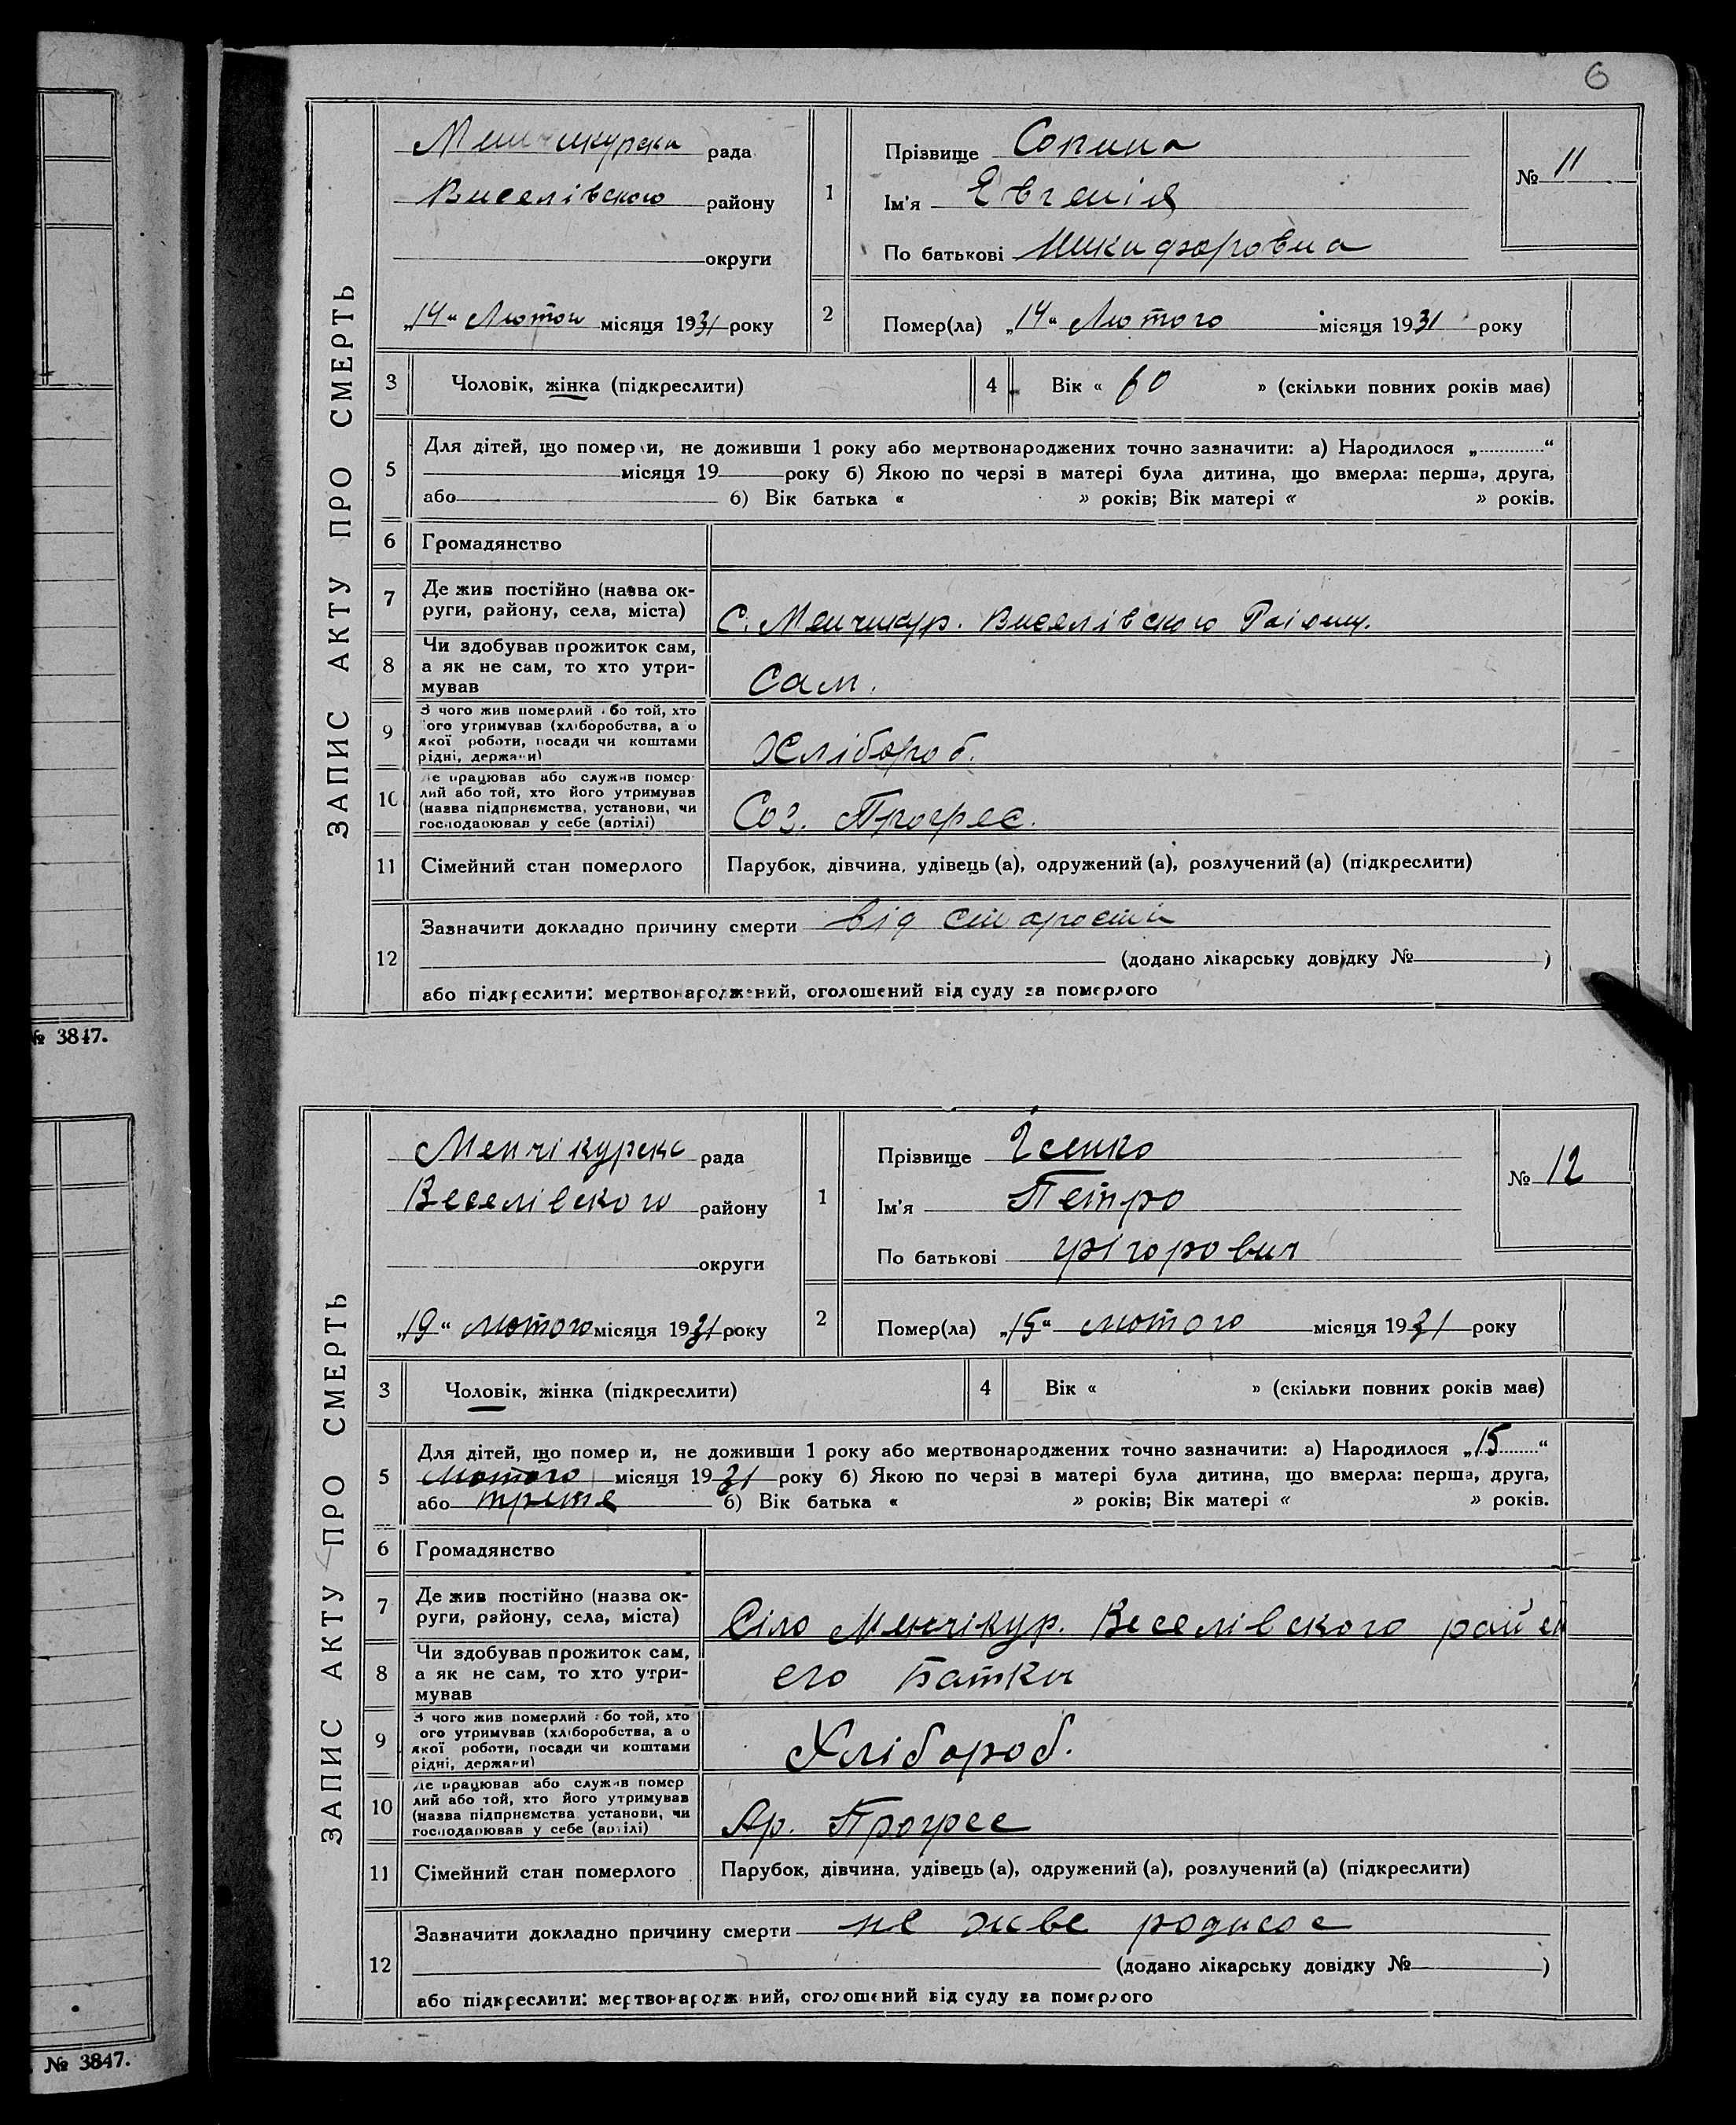 6
ЗАПИС АКТУ ПРО СМЕРТЬ
Менчикурска рада
Виселівского району
округи
„14“ Лютого місяця 1931 року
1 Прізвище Сопина
Ім'я Евгенія
По батькові Микифоровна
№ 11
2 Помер(ла) „14“ Лютого місяця 1931 року
3 Чоловік, жінка (підкреслити)
4 Вік « 60 » (скільки повних років має)
5 Для дітей, що померли, не доживши 1 року або мертвонароджених точно зазначити: а) Народилося „ “
місяця 19 року б) Якою по черзі в матері була дитина, що вмерла: перша, друга,
або б) Вік батька « » років; Вік матері « » років.
6 Громадянство
7 Де жив постійно (назва ок-
руги, району, села, міста) С. Менчикур. Виселівского Раіону.
8 Чи здобував прожиток сам,
а як не сам, то хто утри-
мував Сам.
9 З чого жив померлий або той, хто
його утримував (хліборобства, а о
якої роботи, посади чи коштами
рідні, держави) Хлібороб.
10 Де працював або служив помер
лий або той, хто його утримував
(назва підприємства, установи, чи
господарював у себе (артілі) Соз. Прогрес.
11 Сімейний стан померлого Парубок, дівчина, удівець (а), одружений (а), розлучений (а) (підкреслити)
12 Зазначити докладно причину смерти від старости
(додано лікарську довідку № )
або підкреслити: мертвонароджений, оголошений від суду за померлого
№ 3847.
ЗАПИС АКТУ ПРО СМЕРТЬ
Менчікурска рада
Веселівского району
округи
„19“ лютого місяця 1931 року
1 Прізвище Ісенко
Ім'я Петро
По батькові Грігорович
№ 12
2 Помер(ла) „15“ лютого місяця 1931 року
3 Чоловік, жінка (підкреслити)
4 Вік « » (скільки повних років має)
5 Для дітей, що помер и, не доживши 1 року або мертвонароджених точно зазначити: а) Народилося „15“
лютого місяця 1931 року б) Якою по черзі в матері була дитина, що вмерла: перша, друга,
або третя б) Вік батька « » років; Вік матері « » років.
6 Громадянство
7 Де жив постійно (назва ок-
руги, району, села, міста) Сіло Менчікур. Веселівского
8 Чи здобував прожиток сам,
а як не сам, то хто утри-
мував его Батки
9 З чого жив померлий або той, хто
його утримував (хліборобства, а о
якої роботи, посади чи коштами
рідні, держави) Хлібороб.
10 Де працював або служив помер
лий або той, хто його утримував
(назва підприємства установи, чи
господарював у себе (артілі) Ар. Прогрес
11 Сімейний стан померлого Парубок, дівчина, удівець (а), одружений (а), розлучений (а) (підкреслити)
12 Зазначити докладно причину смерти не живе
(додано лікарську довідку № )
або підкреслити: мертвонароджений, оголошений від суду за померлого
№ 3847.